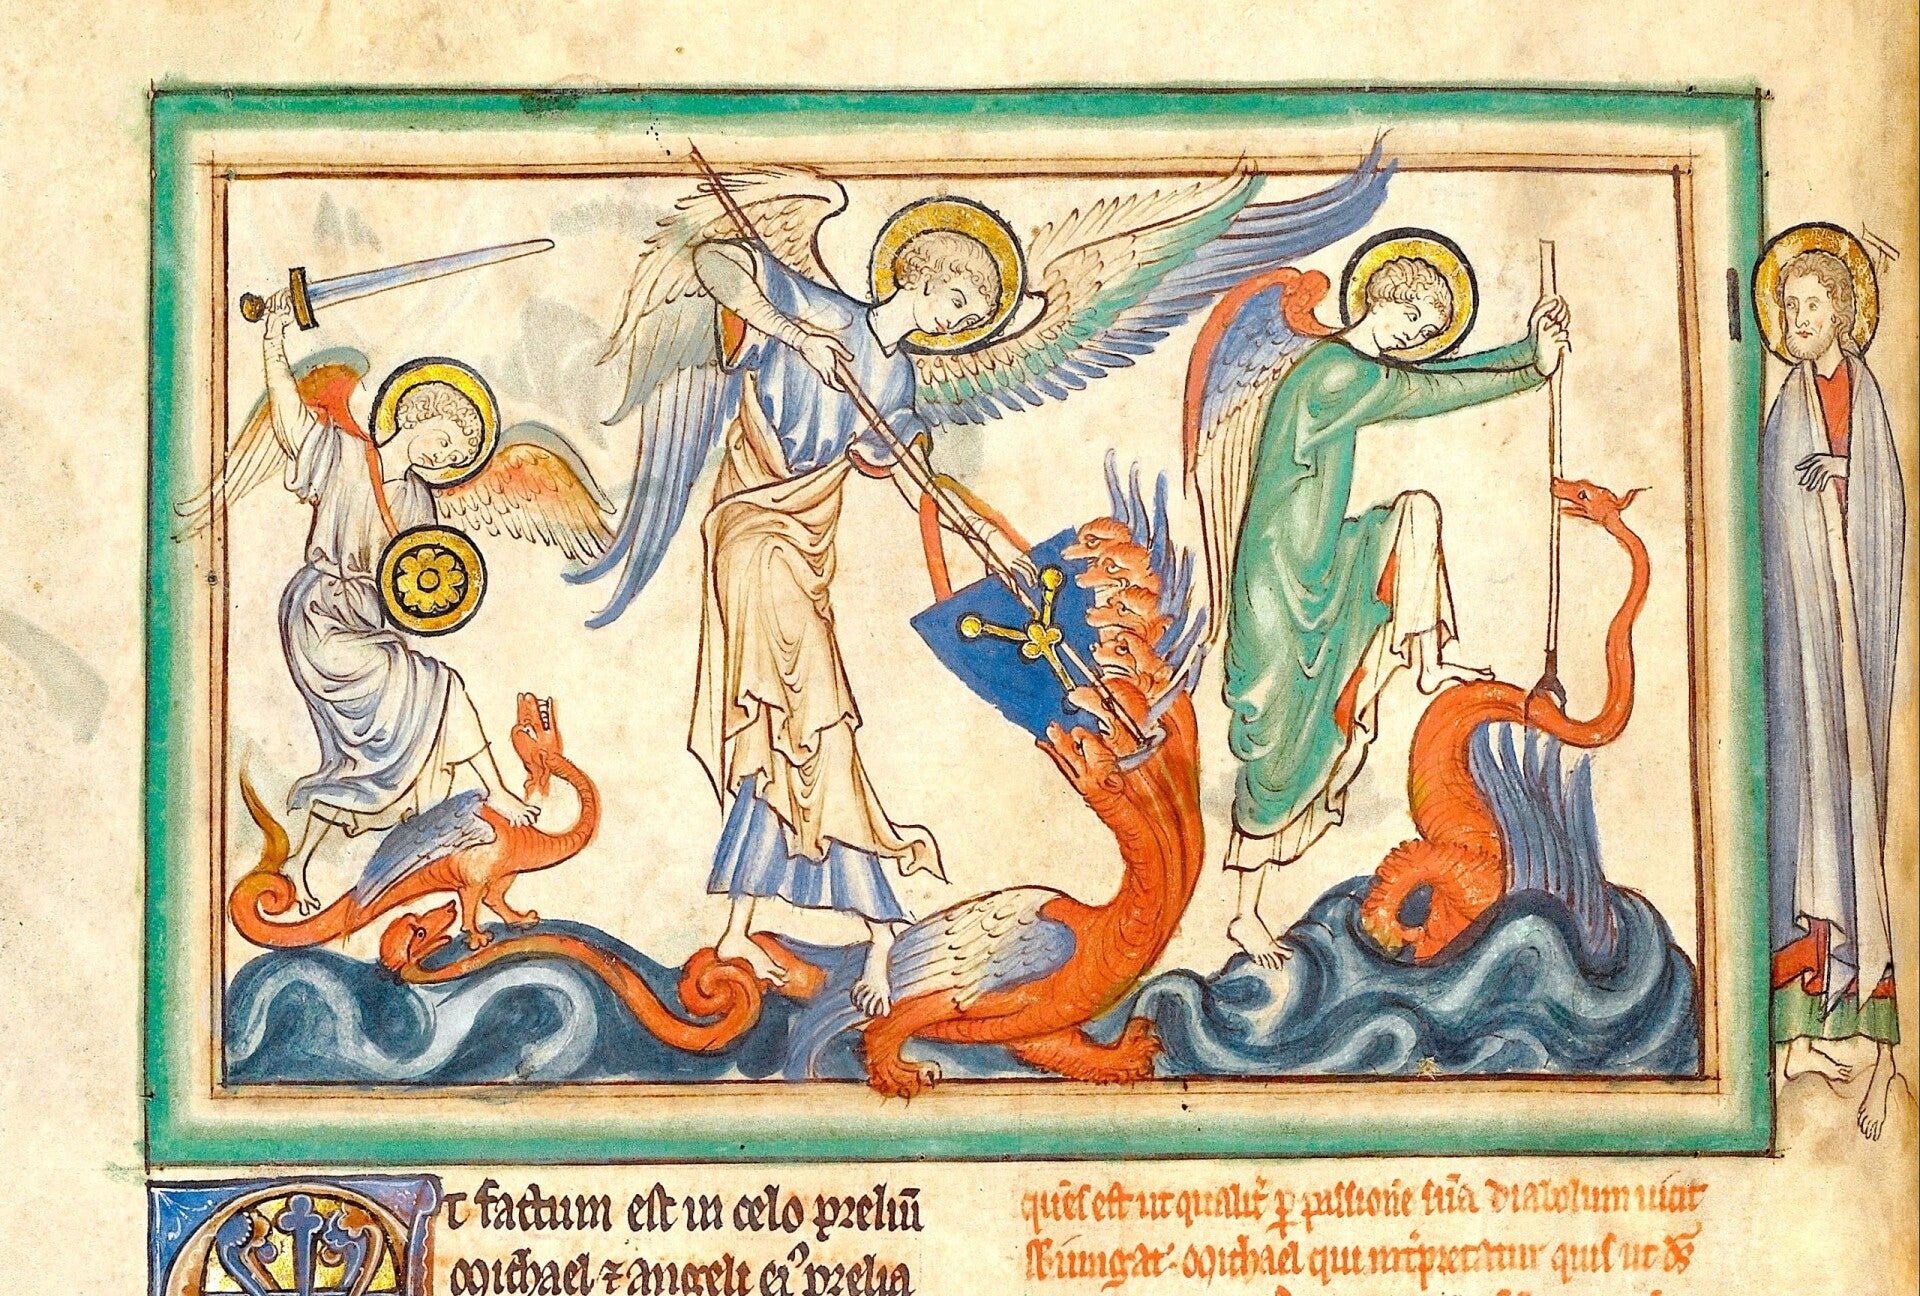 Et factum est in celo preliū
Michael ⁊ angeli ei᷒ prelia
est ut qualit̛ ꝑ passionē suā diabolum uicit
Michael qui int̛pretatur quis ut ds̄